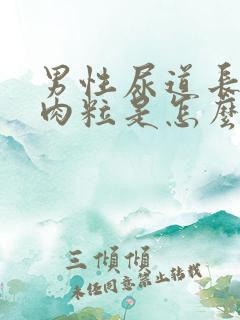 男性尿道長
肉粒是怎麼
三傾傾
未任同意禁止转载